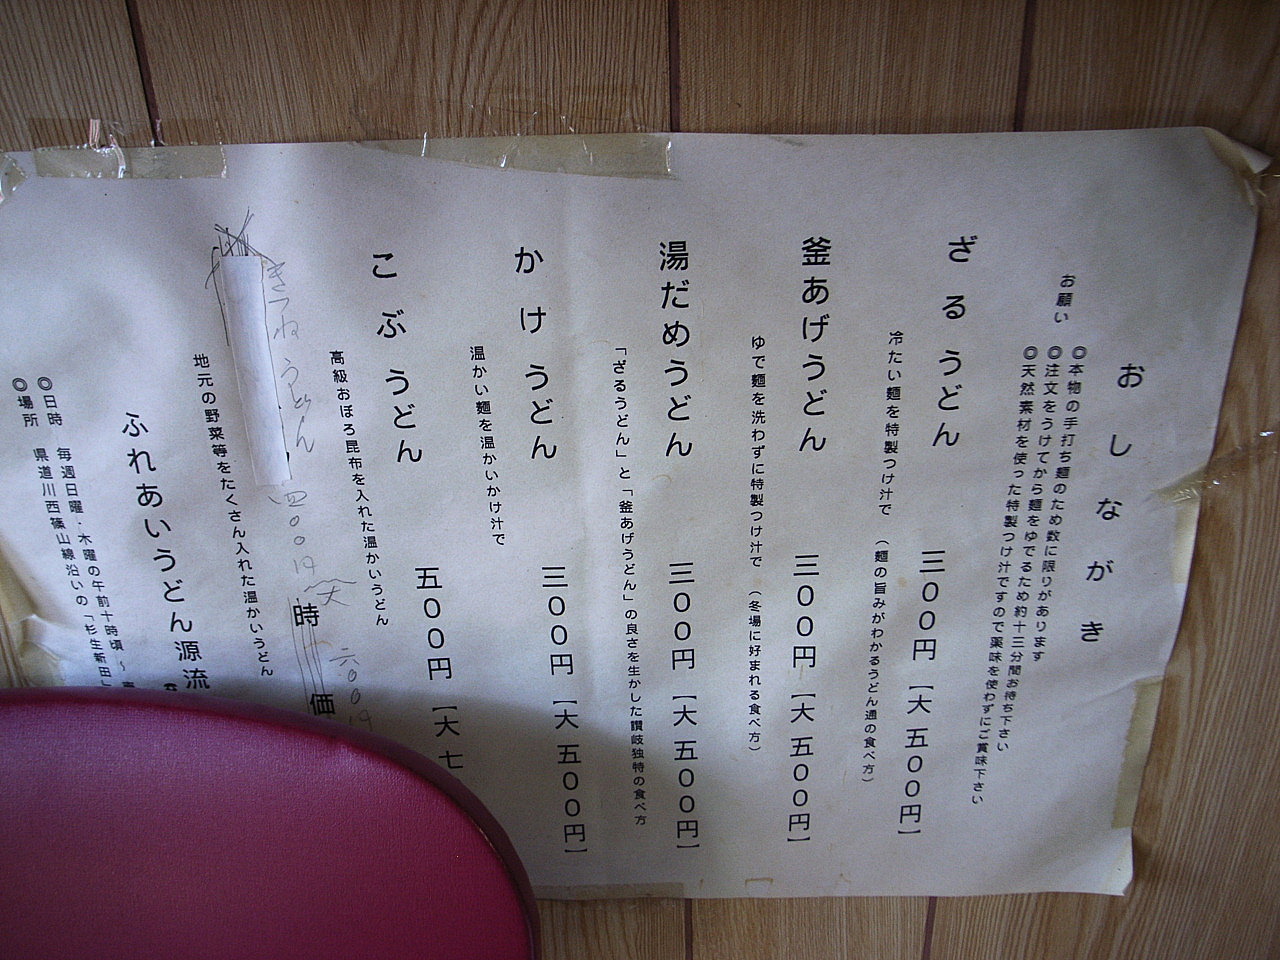 おしながき
お願い
◎本物の手打ち麺のため数に限りがあります
◎注文をうけてから麺をゆでるため約十三分間お待ち下さい
◎天然素材を使った特製つけ汁ですので薬味を使わずにご賞味下さい
ざるうどん 三００円 【大 五００円】
冷たい麺を特製つけ汁で (麺の旨みがわかるうどん通の食べ方)
釜あげうどん 三００円 【大 五００円】
ゆで麺を洗わずに特製つけ汁で (冬場に好まれる食べ方)
湯だめうどん 三００円 【大 五００円】
「ざるうどん」と「釜あげうどん」の良さを生かした讃岐独特の食べ方
かけうどん 三００円 【大 五００円】
温かい麺を温かいかけ汁で
こぶうどん 五００円 【大 七
高級おぼろ昆布を入れた温かいうどん
きつねうどん 四００円 (大 六００円
時価
地元の野菜等をたくさん入れた温かいうどん
ふれあいうどん源流
◎日時 毎週日曜・木曜の午前十時頃～
◎場所 県道川西篠山線沿いの「杉生新田」